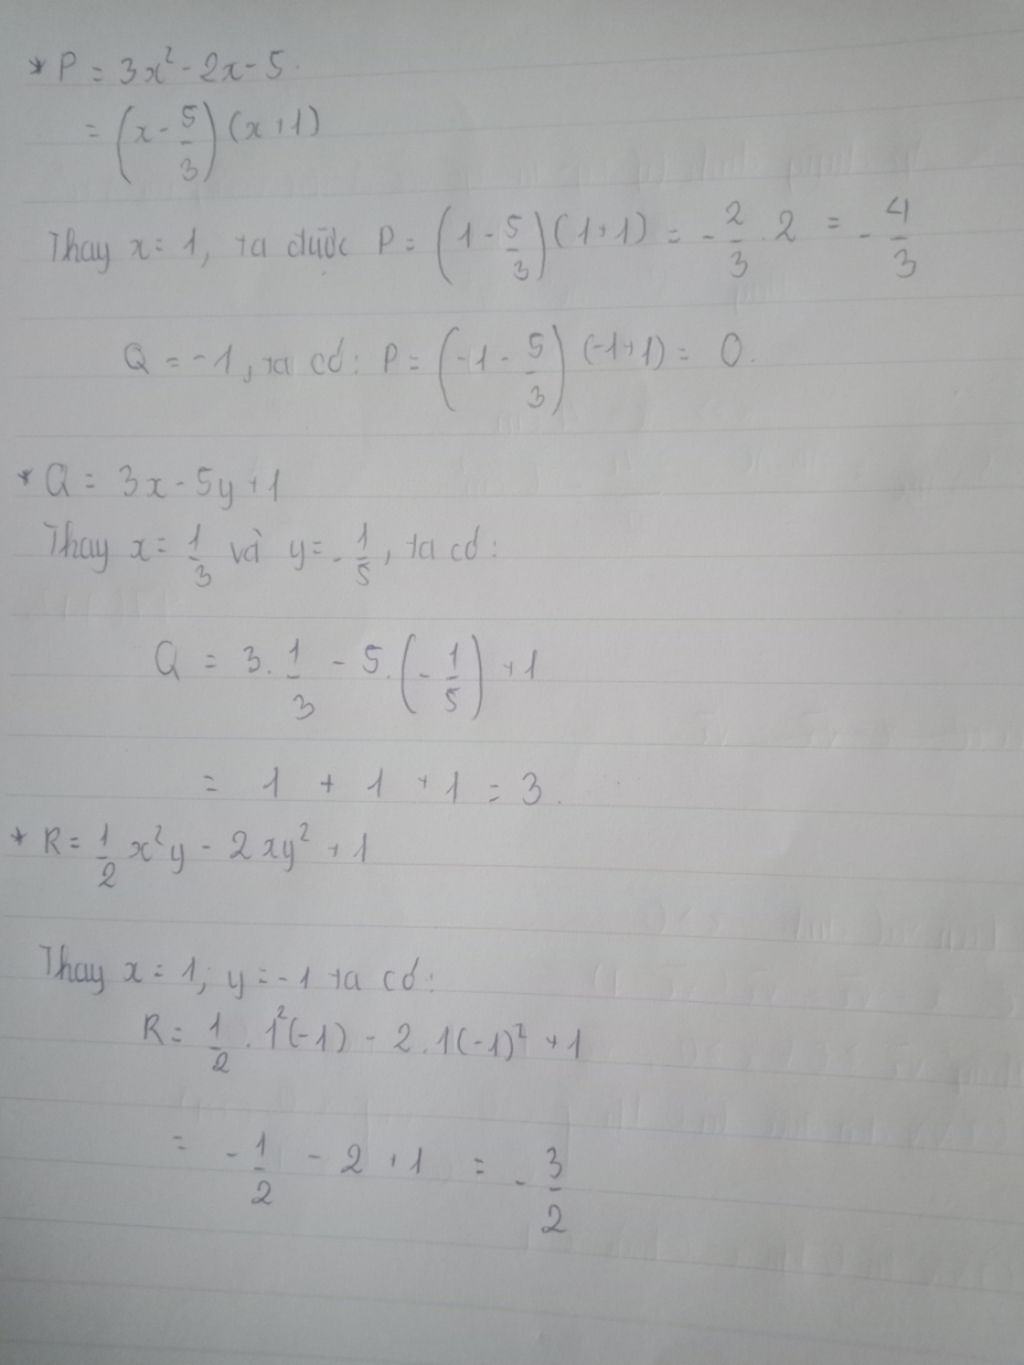 * P = 3x² - 2x - 5.
= (x - 5/3)(x + 1)
Thay x = 1, ta được P = (1 - 5/3)(1 + 1) = - 2/3 . 2 = - 4/3
Q = -1, ta có: P = (-1 - 5/3)(-1 + 1) = 0.
* Q = 3x - 5y + 1
Thay x = 1/3 và y = - 1/5, ta có:
Q = 3. 1/3 - 5.(- 1/5) + 1
= 1 + 1 + 1 = 3.
* R = 1/2 x²y - 2xy² + 1
Thay x = 1; y = -1 ta có:
R = 1/2 . 1²(-1) - 2.1(-1)² + 1
= - 1/2 - 2 + 1 = - 3/2